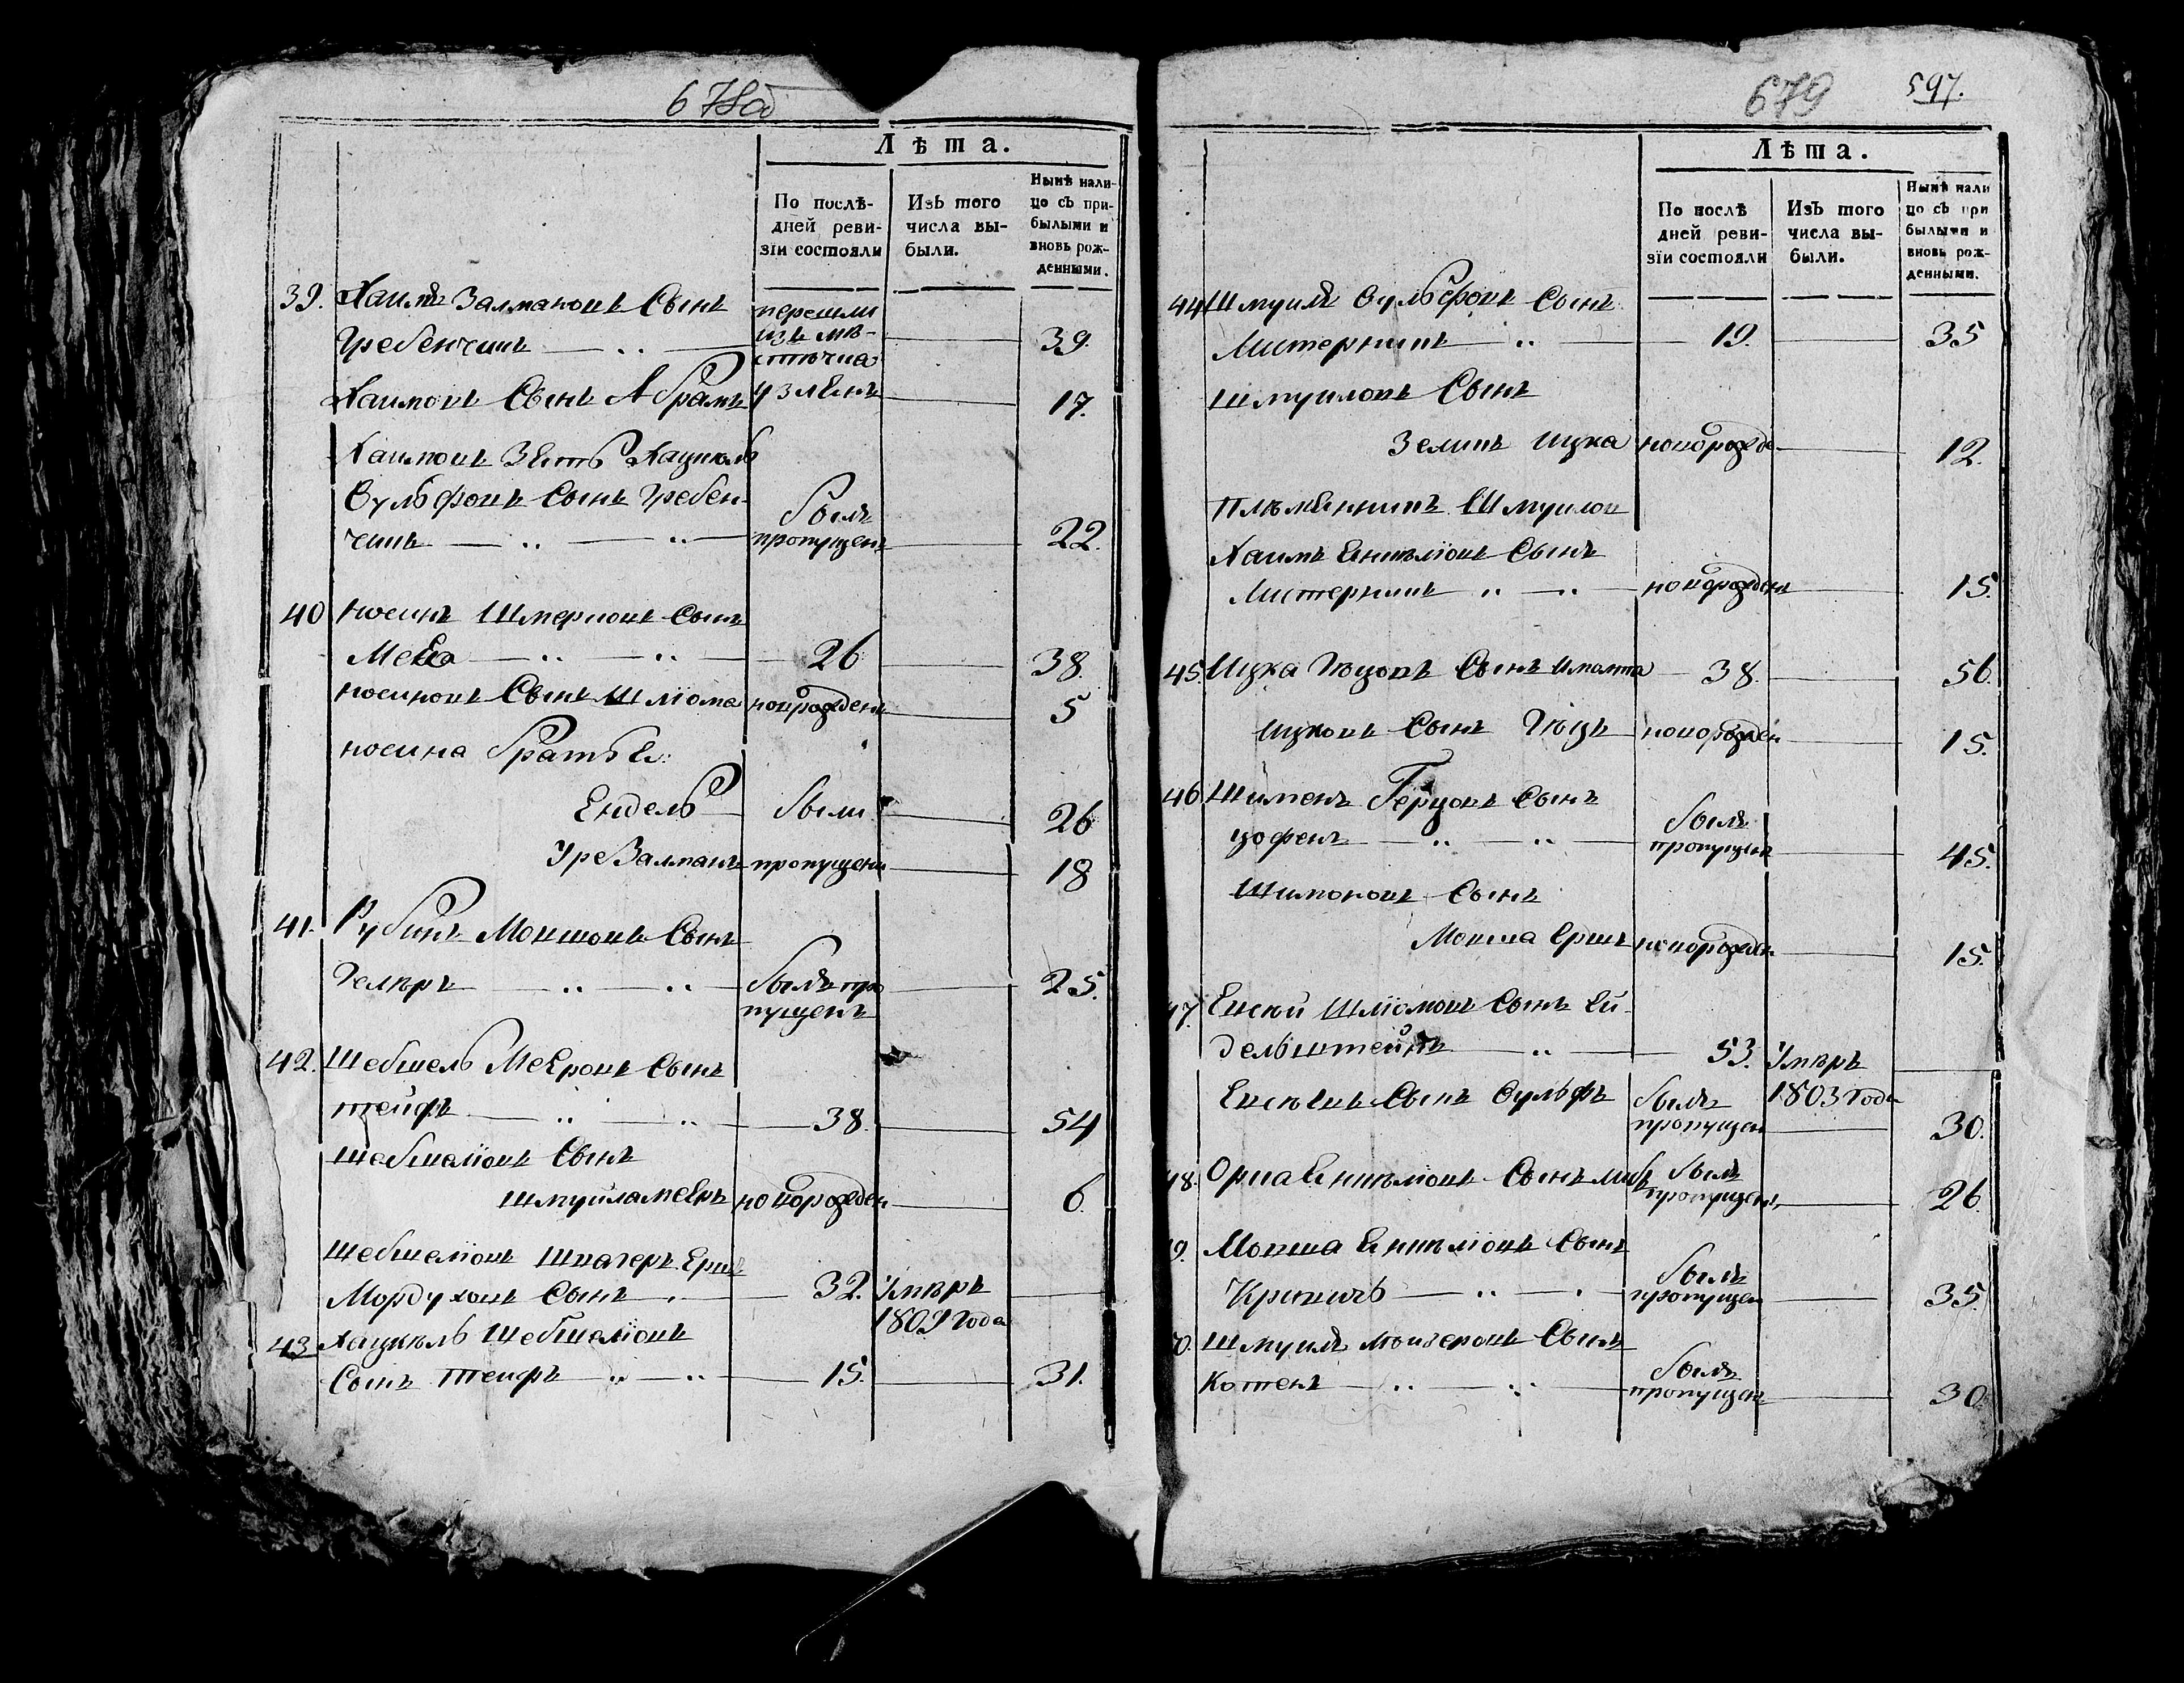 678об
Лѣта.
По послѣ-
дней реви-
зіи состояли
Изъ того
числа вы-
были.
Нынѣ нали-
цо съ при-
былыми и
вновь рож-
денными.
39. Хаимъ Залмановъ Сынъ перешли
изъ мѣ-
Гребенчикъ — 39.
стечка
Хаимовъ Сынъ Абрамъ 17.
Хаимовъ Зять Хацкель
Вульфовъ Сынъ Гребен-
чикъ — былъ пропущенъ 22.
40 Носинъ Шмериовъ Сынъ
26 38.
Носиновъ Сынъ Шліома новорожденъ 5
Носина братья:
Ендель — были 26
Уре Залманъ пропущены 18
41. Рубинъ Мовшовъ Сынъ
Гелеръ — былъ про 25.
пущенъ
42. Шебшель Меѐровъ Сынъ
тейфъ — 38. 54
Шебшеліовъ Сынъ
новорожден 6
Шебшеліовъ Швагеръ Ерш
Мордуховъ Сынъ — 32. Умеръ
1809 Года
43 Хацкель Шебшеліовъ
Сынъ тейфъ — 15. 31.
679 597.
Лѣта.
По послѣ
дней реви-
зіи состояли
Изъ того
числа вы-
были.
Нынѣ нали
цо съ при
былыми и
вновь рож-
денными.
44 Шмуилъ Вульфовъ Сынъ
Мистерникъ — 19. 35
Шмуиловъ Сынъ
Зеликъ Ицка новорожде 12.
Племянникъ Шмуилов
Хаимъ Сынъ
Мистерникъ — новорожденъ 15.
45. Ицка Сынъ 38. 56.
Ицковъ Сынъ новорожден 15.
46 Шименъ Герцовъ Сынъ
цофенъ — былъ пропущенъ 45.
Шимоновъ Сынъ
Мовша Ершъ новорожден 15.
47. Шліомовъ Сынъ Ей-
дельштейнъ — 53. Умеръ
1803 Года
Сынъ Вульфъ былъ пропущен 30.
48. Сынъ былъ
пропущенъ 26.
9. Мовша Сынъ
былъ
пропущен 35.
0. Шмуилъ Сынъ
Котенъ — былъ
пропущен 30.